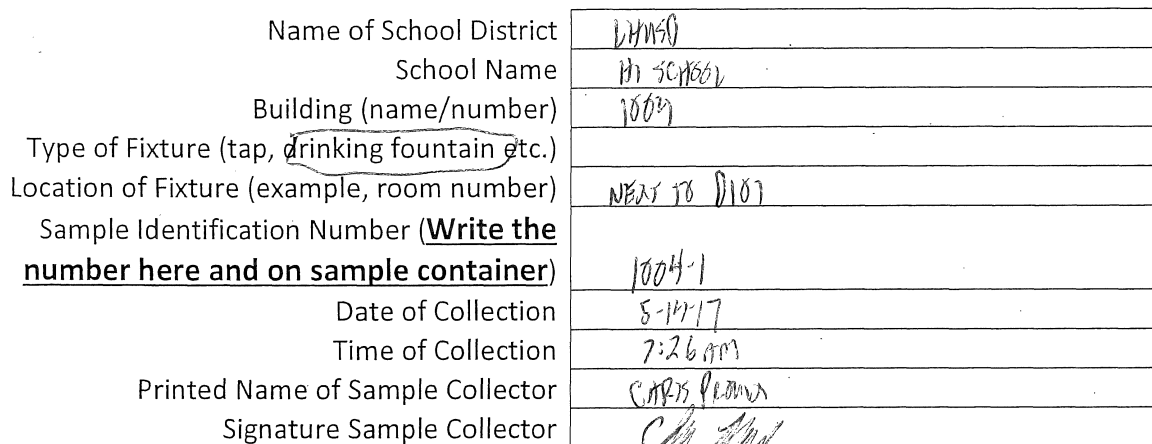 Name of School District LHUSD
School Name HI SCHOOL
Building (name/number) 1004
Type of Fixture (tap, drinking fountain etc.)
Location of Fixture (example, room number) NEXT TO D107
Sample Identification Number (Write the
number here and on sample container) 1004-1
Date of Collection
Time of Collection 7:26 AM
Printed Name of Sample Collector
Signature Sample Collector